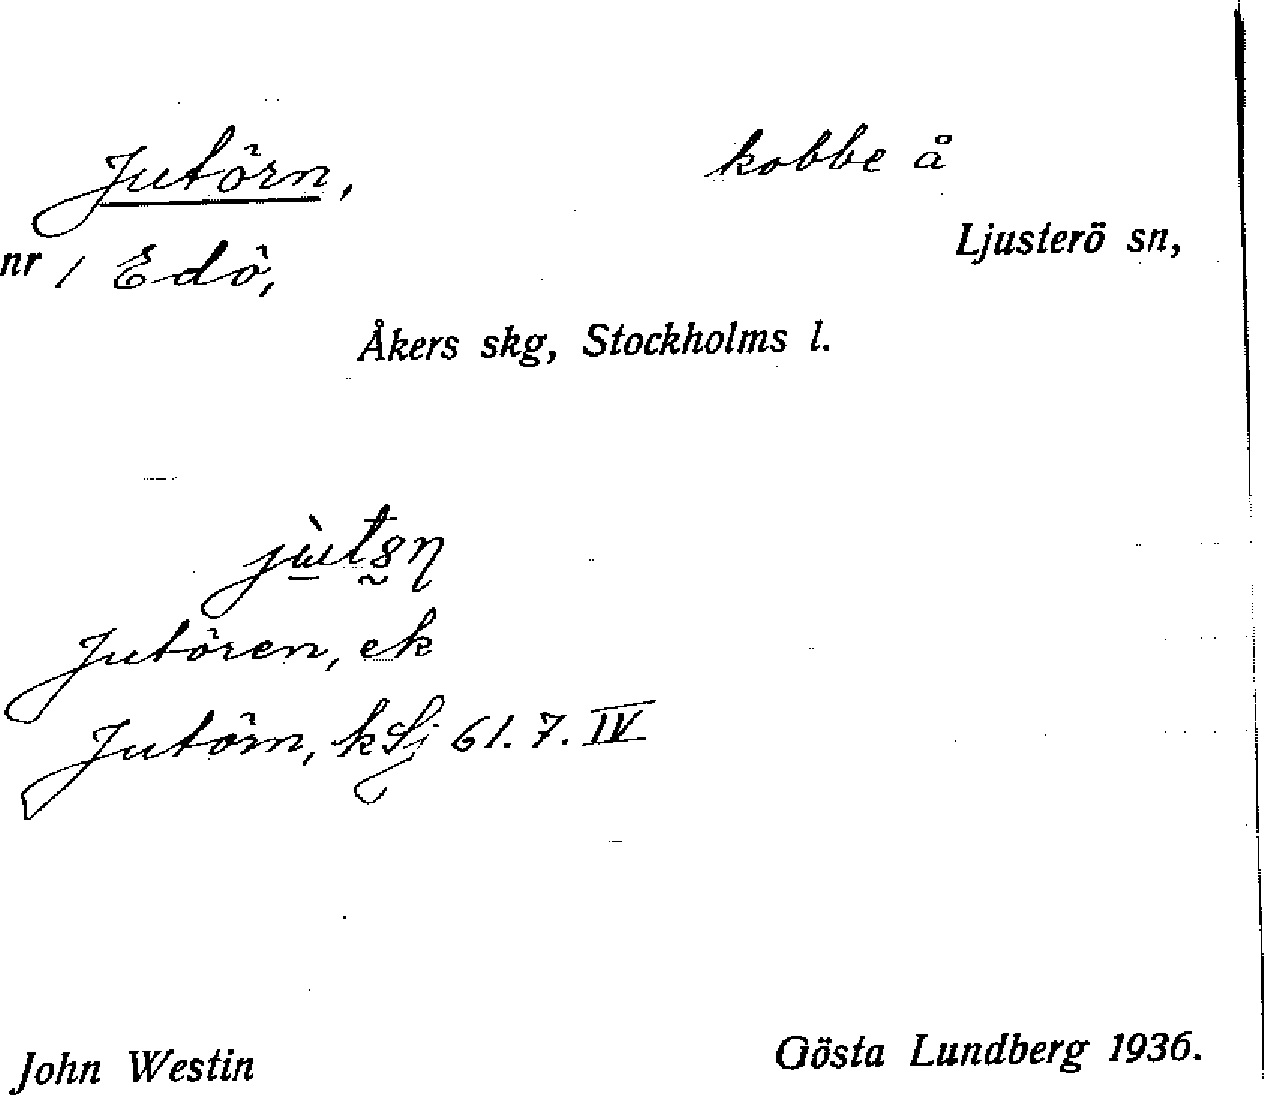 Jutörn, kobbe å
Ljusterö sn,
nr 1 Edö,
Åkers skg, Stockholms l.
Jutören, ek
Jutörn, kSj 61. 7. IV
John Westin Gösta Lundberg 1936.